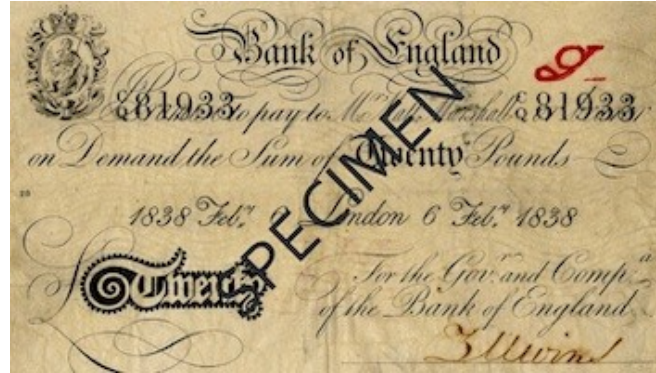 Bank of England
81933 Promise to pay to Mr. Matt. Marshall 81933
on Demand the Sum of Twenty Pounds
20
1838 Feby. 6 London 6 Feby. 1838
Twenty
For the Govr. and Compa.
of the Bank of England
SPECIMEN